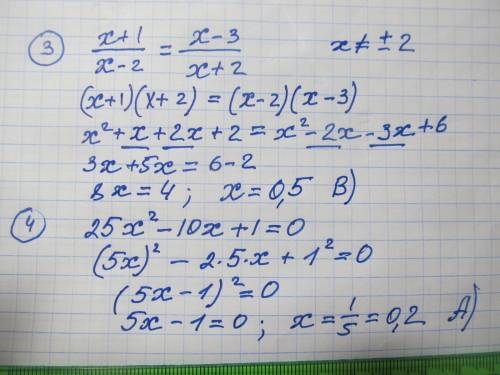 ③ (x+1)/(x-2) = (x-3)/(x+2) x ≠ ± 2
(x+1)(x+2) = (x-2)(x-3)
x²+x+2x+2 = x²-2x-3x+6
3x+5x = 6-2
8x = 4 ; x = 0,5 В)
④ 25x²-10x+1=0
(5x)² - 2·5·x + 1² = 0
(5x-1)² = 0
5x-1=0 ; x = 1/5 = 0,2 А)